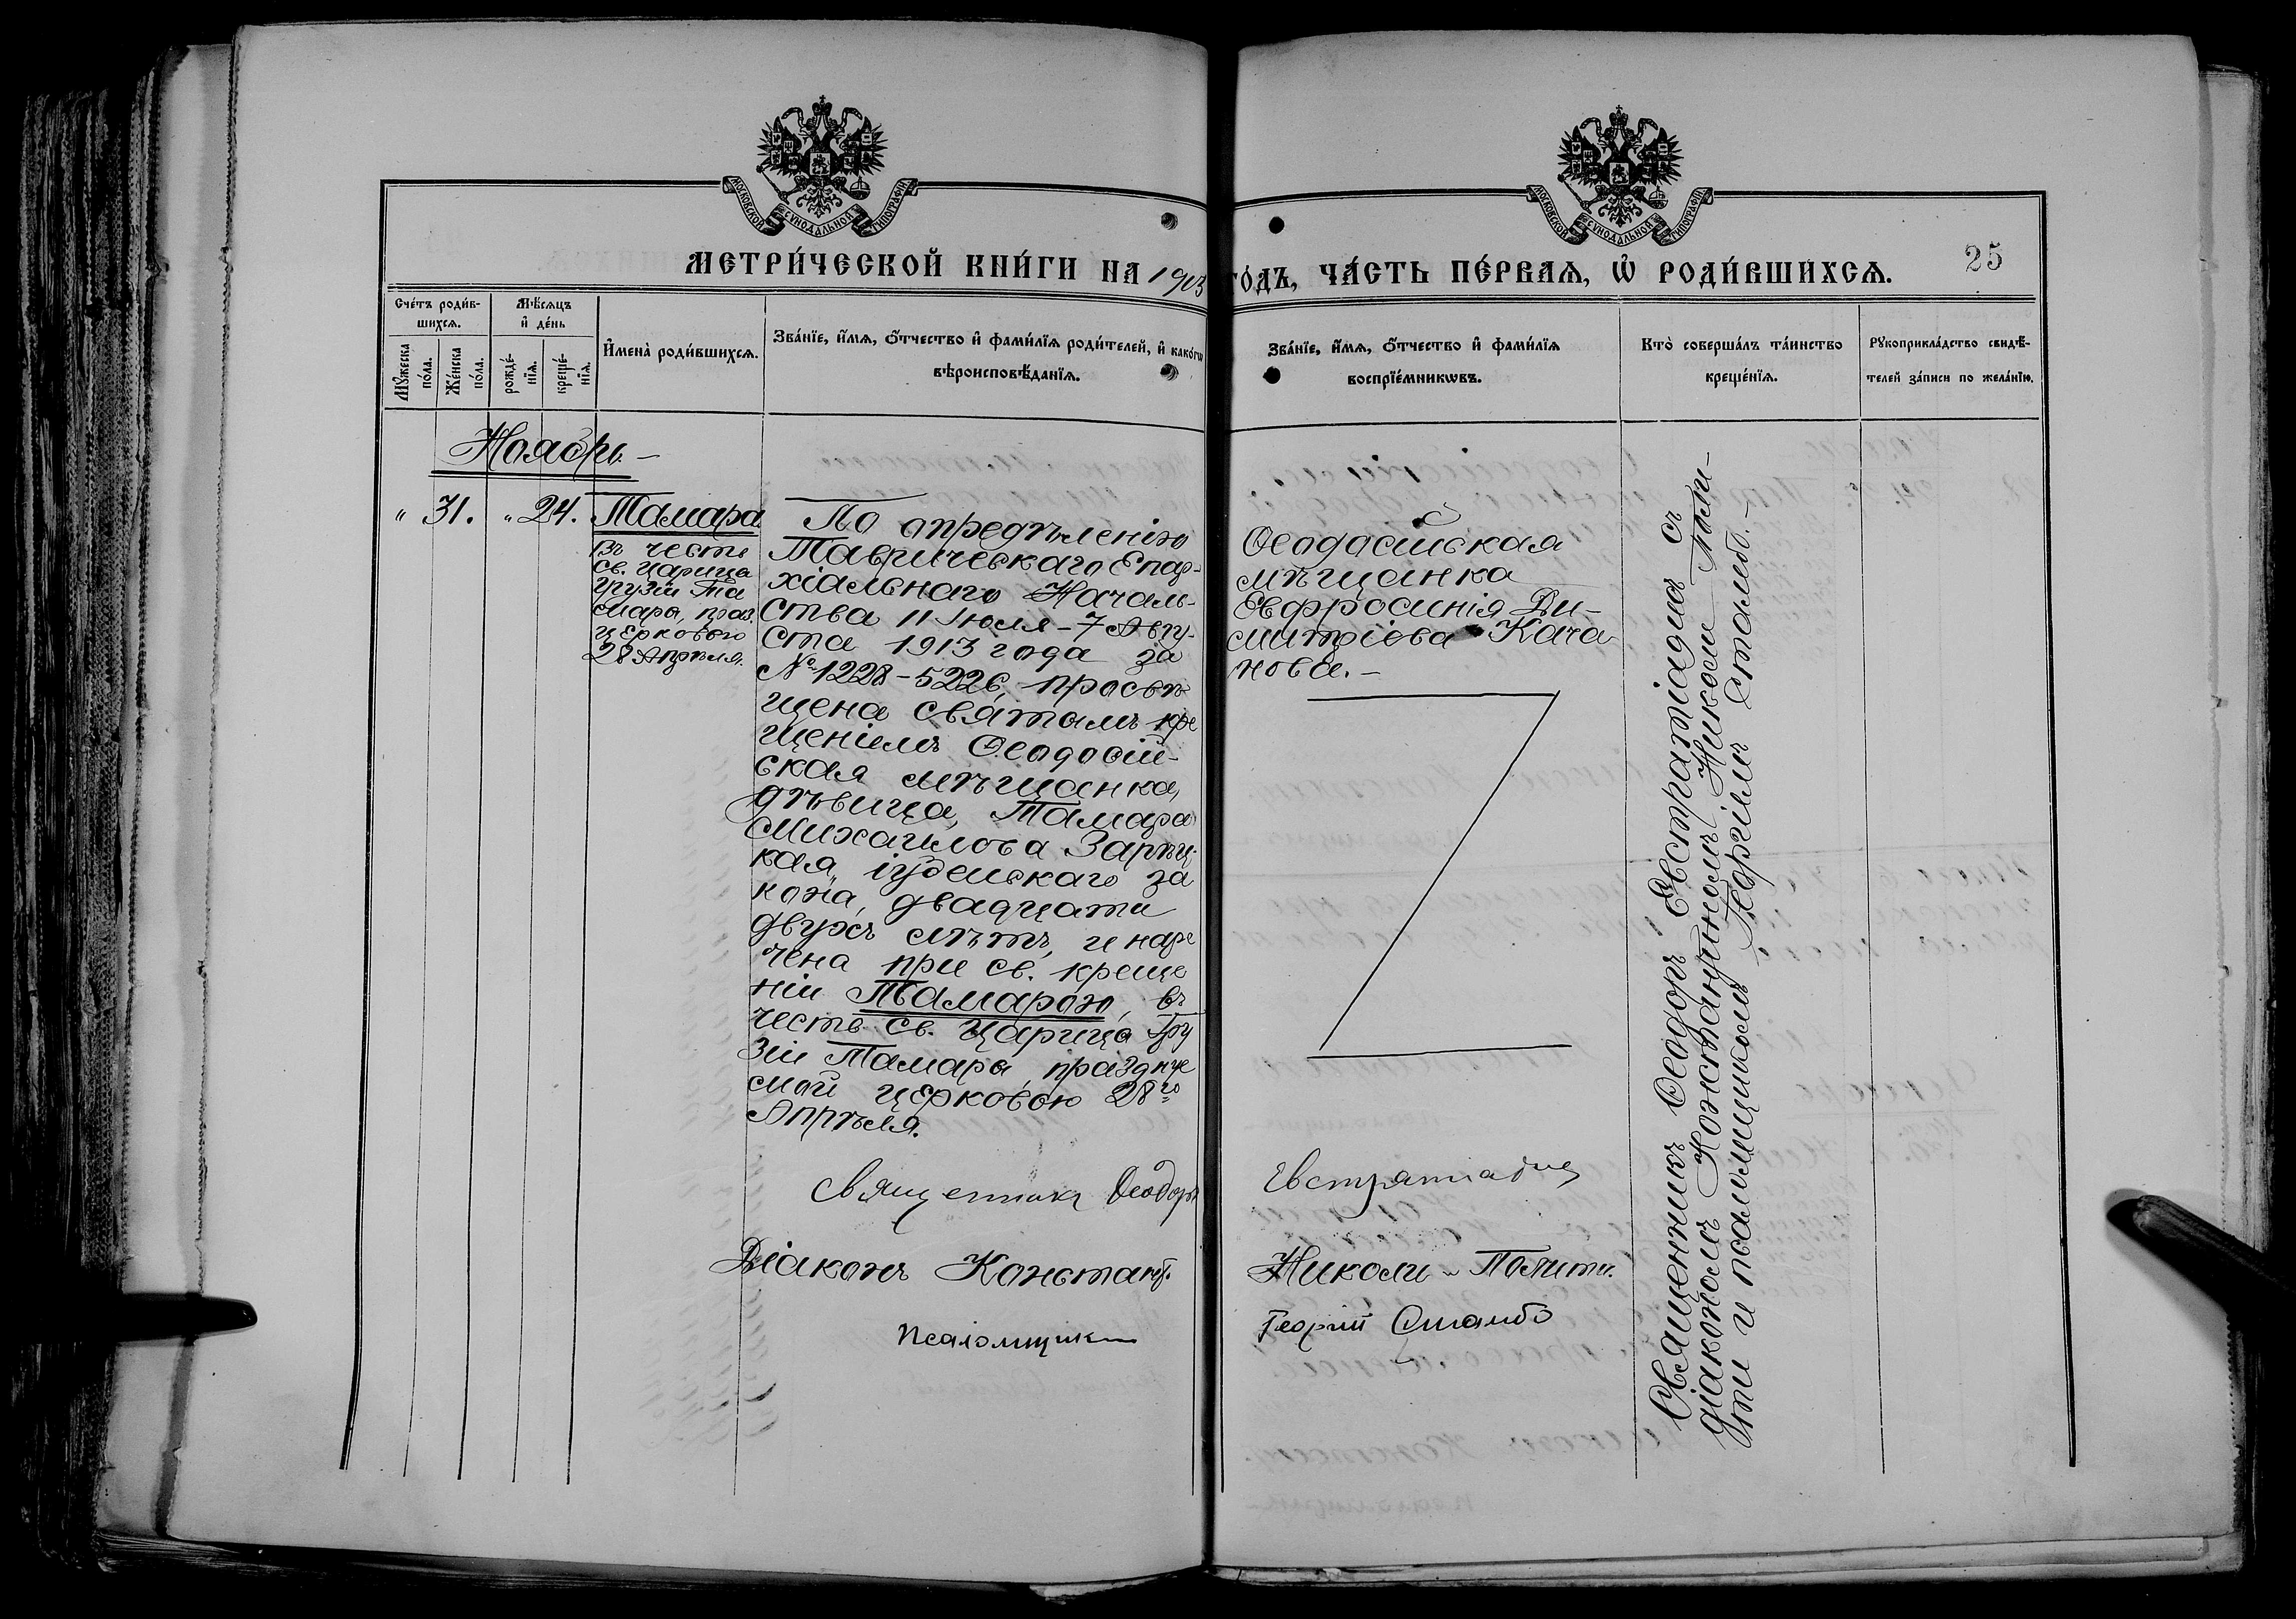 МОСКОВСКОЙ СѴНОДАЛЬНОЙ ТИПОГРАФІИ
МОСКОВСКОЙ СѴНОДАЛЬНОЙ ТИПОГРАФІИ
МЕТРИ́ЧЕСКОЙ КНИ́ГИ НА 1913
ГО́ДЪ, ЧА́СТЬ ПЕ́РВАѦ, Ѡ РОДИ́ВШИХСѦ.
25
Сче́тъ роди́в-
шихсѧ.
Мѣ́сѧцъ
и де́нь
Мꙋ́жеска
по́ла.
Же́нска
по́ла.
рожде́-
нїѧ.
креще́-
нїѧ.
Имена̀ роди́вшихсѧ.
Зва́нїе, и́мѧ, ѻ́тчество и фами́лїѧ роди́телей, и како́гѡ
вѣроисповѣ́данїѧ.
Зва́нїе, и́мѧ, ѻ́тчество и фами́лїѧ
воспрїе́мникѡвъ.
Кто̀ соверша́лъ та́инство
креще́нїѧ.
Рꙋкоприкла́дство свидѣ́-
телей за́писи по жела́нїю.
Ноябрь.—
" 31. " 24. Тамара
Въ честь
св. Царицы
Грузіи Та
мары, празд.
церковью
28 Апрѣля.
По опредѣленію
Таврическаго Епар-
хіальнаго Началь-
ства 11 Іюля – 7 Авгу-
ста 1913 года за
№ 1228–5226, просвѣ
щена святымъ кре
щеніемъ Ѳеодосій-
ская мѣщанка,
дѣвица, Тамара
Михайлова Зарѣц-
кая, іудейскаго за
кона, двадцати
двухъ лѣтъ, и наре
чена при св. креще
ніи Тамарою, въ
честь св. Царицы Гру
зіи Тамары, праздnуе
мой церковью 28го
Апрѣля.
Ѳеодосійская
мѣщанка
Евфросинія Ди-
митріева Кача
нова.—
Священникъ Ѳеодоръ Евстратіадисъ съ
діакономъ Константиномъ Николи-Поли-
ти и псаломщикомъ Георгіемъ Стамб.—
Священникъ Ѳеодоръ Евстратіадис
Діаконъ Констант. Николи-Полити.
Псаломщикъ Георгій Стамбо